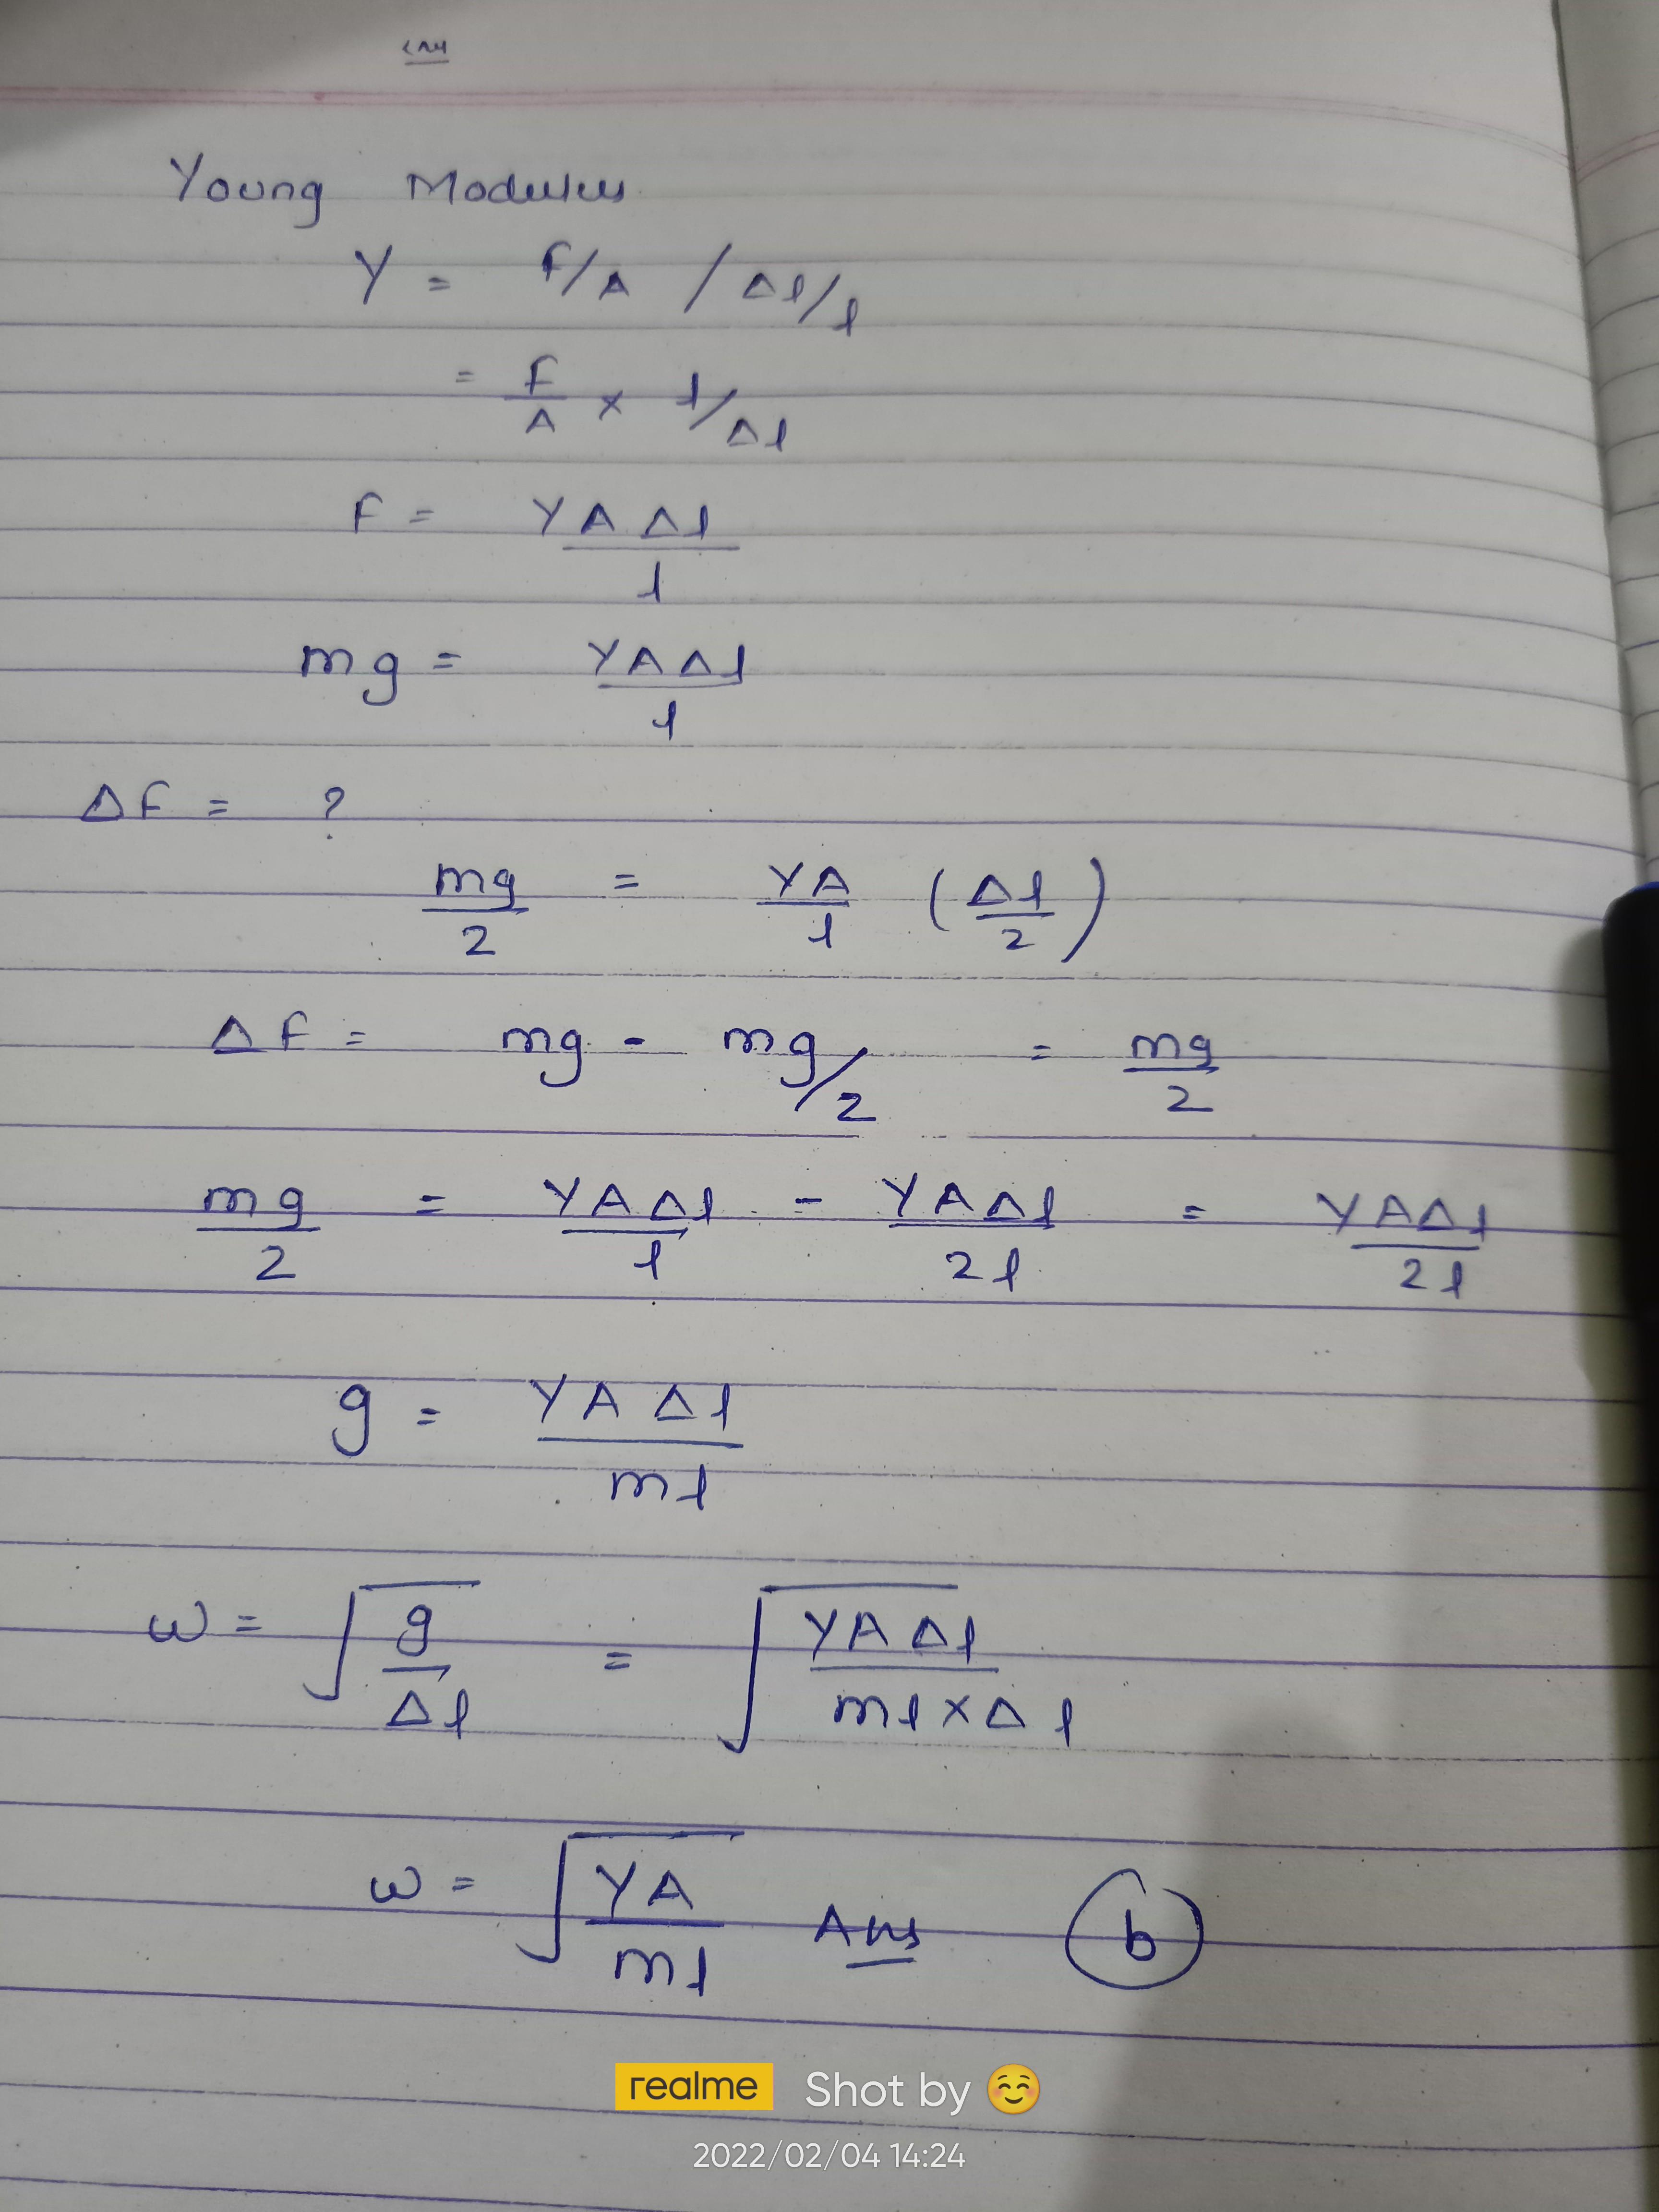 Young Modulus
Y = F/A / Δl/l
= F/A × l/Δl
F = YAΔl/l
mg = YAΔl/l
ΔF = ?
mg/2 = YA/l (Δl/2)
ΔF = mg - mg/2 = mg/2
mg/2 = YAΔl/l - YAΔl/2l = YAΔl/2l
g = YAΔl/ml
ω = √(g/Δl) = √(YAΔl/ml×Δl)
ω = √(YA/ml) Ans b
realme Shot by 😊
2022/02/04 14:24